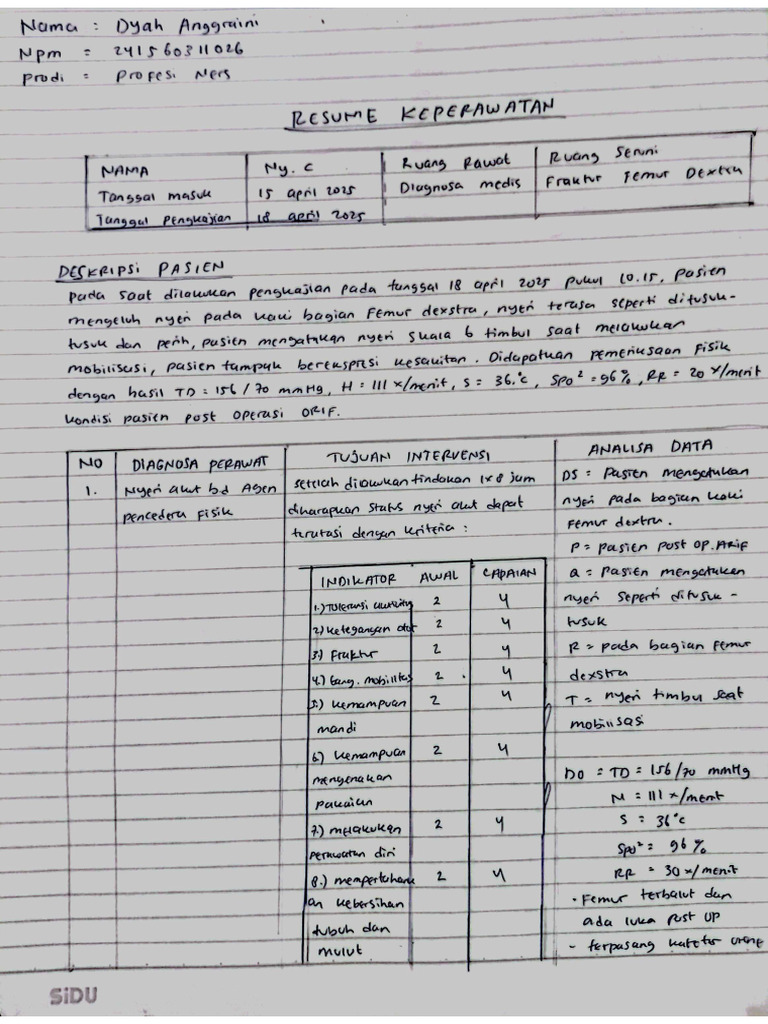 Nama : Dyah Anggraini
Npm = 241560311026
Prodi = Profesi Ners
RESUME KEPERAWATAN
NAMA Ny. C Ruang Rawat Ruang Seruni
Tanggal masuk 15 april 2025 Diagnosa medis Fraktur Femur Dextra
Tanggal Pengkajian 18 april 2025
DESKRIPSI PASIEN
Pada saat dilakukan pengkajian pada tanggal 18 april 2025 pukul 10.15, pasien
mengeluh nyeri pada kaki bagian Femur dexstra, nyeri terasa seperti ditusuk-
tusuk dan perih, pasien mengatakan nyeri skala 6 timbul saat melakukan
mobilisasi, pasien tampak berekspresi kesakitan. Didapatkan pemeriksaan Fisik
dengan hasil TD = 156/70 mmHg, H = 111 x/menit, S = 36.°c, SPO² = 96%, RR = 20 x/menit
kondisi pasien post operasi ORIF.
NO DIAGNOSA PERAWAT TUJUAN INTERVENSI ANALISA DATA
1. Nyeri akut bd Agen
pencedera Fisik
setelah dilakukan tindakan 1x8 jam
diharapkan status nyeri akut dapat
teratasi dengan kriteria :
INDIKATOR AWAL CAPAIAN
1.) Toleransi 2 4
2.) ketegangan otot 2 4
3.) Fraktur 2 4
4.) Gang. mobilitas 2 4
5.) Kemampuan 2 4
mandi
6.) Kemampuan 2 4
mengenakan
pakaian
7.) melakukan 2 4
perawatan diri
8.) mempertahank 2 4
an kebersihan
tubuh dan
mulut
DS = Pasien mengatakan
nyeri pada bagian kaki
Femur dextra.
P = pasien post OP. Arif
Q = Pasien mengatakan
nyeri seperti ditusuk-
tusuk
R = pada bagian Femur
dexstra
T = nyeri timbul saat
mobilisasi
DO = TD = 156/70 mmHg
N = 111 x/menit
S = 36°c
SPO² = 96%
RR = 30 x/menit
• Femur terbalut dan
ada luka post OP
- terpasang kateter urine
SiDU